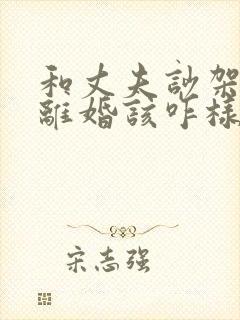 和丈夫訬架
離婚該咋樣
宋志强